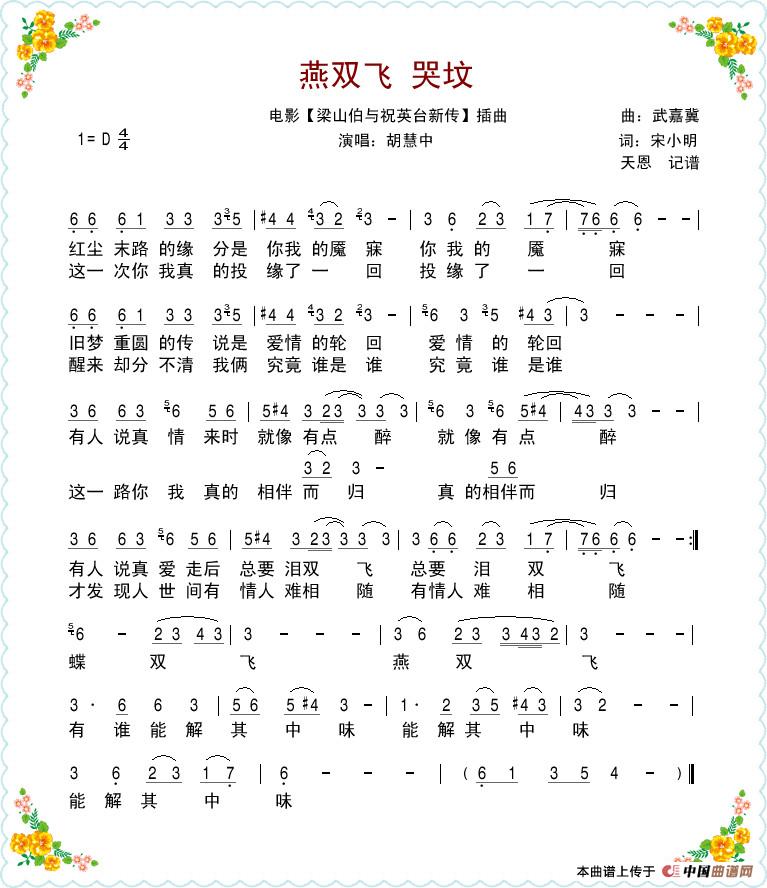 燕双飞 哭坟
电影【梁山伯与祝英台新传】插曲 曲：武嘉冀
1=D 4/4 演唱：胡慧中 词：宋小明
天恩 记谱
6 6 6 1 3 3 3 35 | #4 4 43 2 23 - | 3 6 2 3 1 7 | 76 6 6 - - |
红尘 末路 的缘 分是 你我 的魇 寐 你 我 的 魇 寐
这一 次你 我真 的投 缘了 一 回 投 缘 了 一 回
6 6 6 1 3 3 3 35 | #4 4 43 2 23 - | 56 3 35 #4 3 | 3 - - - |
旧梦 重圆 的传 说是 爱情 的轮 回 爱 情 的 轮回
醒来 却分 不清 我俩 究竟 谁是 谁 究 竟 谁 是谁
3 6 6 3 56 5 6 | 5#4 3 23 3 3 3 | 56 3 56 5#4 | 43 3 3 - - |
有人 说真 情 来时 就像 有点 醉 就 像 有 点 醉
3 2 3 - 5 6
这一 路你 我 真的 相伴 而 归 真 的相伴而 归
3 6 6 3 56 5 6 | 5 #4 3 23 3 3 3 | 3 6 6 2 3 1 7 | 76 6 6 - - :‖
有人 说真 爱 走后 总要 泪双 飞 总要 泪 双 飞
才发 现人 世 间有 情人 难相 随 有情人 难 相 随
56 - 2 3 4 3 | 3 - - - | 3 6 - 2 3 3 43 2 | 3 - - - |
蝶 双 飞 燕 双 飞
3 · 6 6 3 | 5 6 5 #4 3 - | 1 · 2 3 5 #4 3 | 3 2 - - |
有 谁 能 解 其 中 味 能 解 其 中 味
3 6 2 3 1 7 | 6 - - - | ( 6 1 3 5 4 - ) ‖
能 解 其 中 味
本曲谱上传于 中国曲谱网